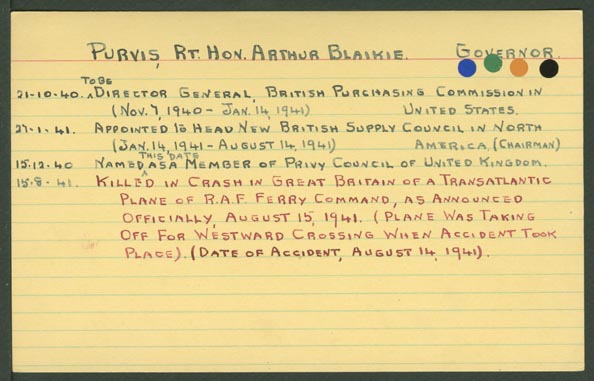 PURVIS, RT. HON. ARTHUR BLAIKIE. GOVERNOR.
TO BE
21-10-40. ^DIRECTOR GENERAL, BRITISH PURCHASING COMMISSION IN
(NOV. 7, 1940 - JAN. 14, 1941) UNITED STATES.
27-1-41. APPOINTED TO HEAD NEW BRITISH SUPPLY COUNCIL IN NORTH
(JAN. 14, 1941 - AUGUST 14, 1941) AMERICA. (CHAIRMAN)
THIS DATE
15-12-40 NAMED ^ AS A MEMBER OF PRIVY COUNCIL OF UNITED KINGDOM.
15-8-41. KILLED IN CRASH IN GREAT BRITAIN OF A TRANSATLANTIC
PLANE OF R.A.F. FERRY COMMAND, AS ANNOUNCED
OFFICIALLY, AUGUST 15, 1941. (PLANE WAS TAKING
OFF FOR WESTWARD CROSSING WHEN ACCIDENT TOOK
PLACE). (DATE OF ACCIDENT, AUGUST 14, 1941).